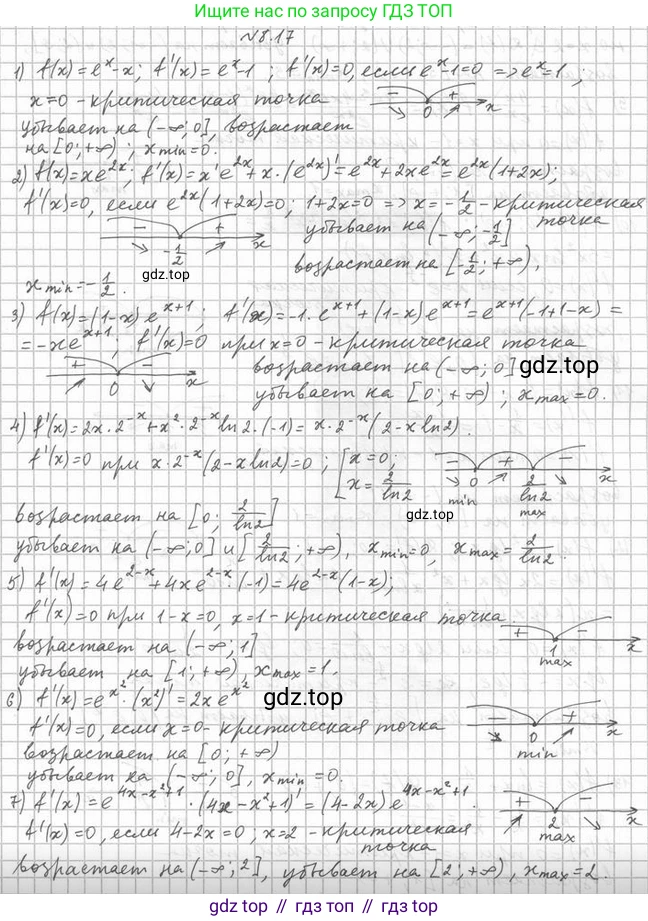 Еще больше готовых домашних заданий ищи по запросу ГДЗ ТОП
№8.17
1) f(x)=eˣ-x; f'(x)=eˣ-1 ; f'(x)=0, если eˣ-1=0 => eˣ=1 ;
x=0 - критическая точка
- + 0 x
убывает на (-∞;0], возрастает
на [0;+∞) ; x min=0.
2) f(x)=xe²ˣ; f'(x)=x'e²ˣ+x·(e²ˣ)'=e²ˣ+2xe²ˣ=e²ˣ(1+2x);
f'(x)=0, если e²ˣ(1+2x)=0; 1+2x=0 => x=-1/2 - критическая точка
- + -1/2 x
убывает на (-∞;-1/2]
возрастает на [-1/2;+∞),
gdz.top
x min=-1/2.
3) f(x)=(1-x)eˣ⁺¹; f'(x)=-1·eˣ⁺¹+(1-x)eˣ⁺¹=eˣ⁺¹(-1+1-x)=
=-xeˣ⁺¹; f'(x)=0 при x=0 - критическая точка
+ - 0 x
возрастает на (-∞;0]
gdz.top
убывает на [0;+∞) ; x max=0.
4) f'(x)=2x·2⁻ˣ+x²·2⁻ˣln2·(-1)=x·2⁻ˣ(2-xln2).
f'(x)=0 при x·2⁻ˣ(2-xln2)=0 ; [x=0; x=2/ln2
- + - 0 min 2/ln2 max x
gdz.top
возрастает на [0; 2/ln2]
убывает на (-∞;0] и [2/ln2;+∞), x min=0, x max=2/ln2.
5) f'(x)=4e²⁻ˣ+4xe²⁻ˣ·(-1)=4e²⁻ˣ(1-x);
f'(x)=0 при 1-x=0, x=1 - критическая точка.
+ - 1 max x
возрастает на (-∞;1]
убывает на [1;+∞), x max=1.
6) f'(x)=e^x²·(x²)'=2xe^x²
gdz.top
f'(x)=0, если x=0 - критическая точка
- + 0 min x
возрастает на [0;+∞)
убывает на (-∞;0], x min=0.
7) f'(x)=e^4x-x²+1·(4x-x²+1)'=(4-2x)e^4x-x²+1.
f'(x)=0, если 4-2x=0 ; x=2 - критическая точка
+ - 2 max x
возрастает на (-∞;2], убывает на [2;+∞), x max=2.
gdz.top // гдз.топ // gdz.top // гдз.топ